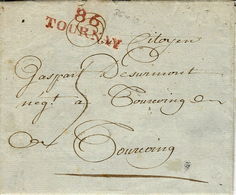 86
TOURNAY
Citoyen
Gaspar Desurmont
négt. à Tourcoing
Tourcoing